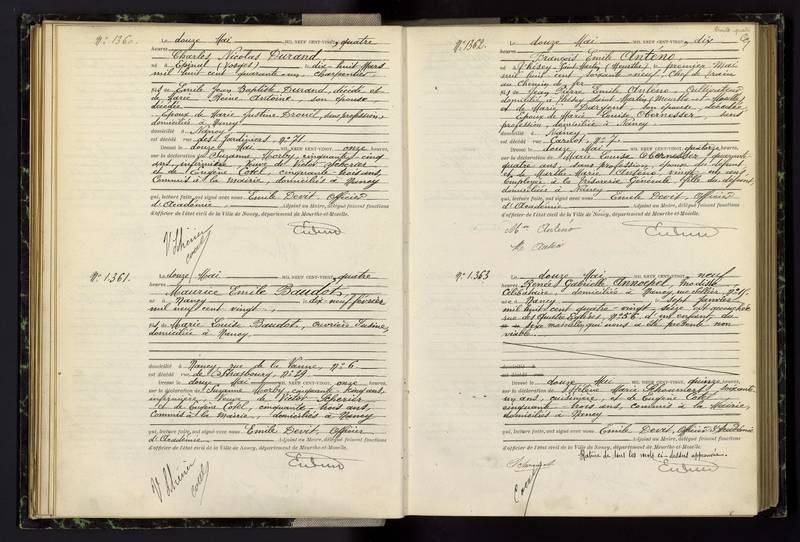 N° 1360.
Le douze Mai, MIL NEUF CENT-VINGT quatre
heures
Charles Nicolas Durand
né à Epinal (Vosges) le dix huit Mars
mil huit cent quarante un, charpentier
fils de Emile Jean Baptiste Durand, décédé et
de Marie Reine Antoine son épouse
décédée
Epoux de Marie Justine Drouel, sans profession,
domiciliée à Nancy
domicilié à Nancy
est décédé rue des Jardiniers, N° 71
Dressé le douze Mai onze heures,
sur la déclaration de Suzanne Morby, cinquante cinq
ans, infirmière, Veuve de Victor Scherier
et de Eugène Cotel, cinquante trois ans,
Commis à la Mairie, domiciliés à Nancy
qui, lecture faite, ont signé avec nous Emile Devit, Officier
d'Académie Adjoint au Maire, délégué faisant fonctions
d'officier de l'état civil de la Ville de Nancy, département de Meurthe-et-Moselle.
Cotel
N° 1361.
Le douze Mai, MIL NEUF CENT-VINGT, quatre
heures
Maurice Emile Baudot,
né à Nancy le dix neuf février
mil neuf cent vingt,
fils de Marie Louise Baudot, ouvrière d'usine,
domiciliée à Nancy.
domicilié à Nancy, rue de la Vanne, N° 6
est décédé rue de Strasbourg, N° 29
Dressé le douze Mai MIL NEUF CENT-VINGT, onze heures,
sur la déclaration de Suzanne Morby, cinquante cinq ans,
infirmière, Veuve de Victor Scherier
et de Eugène Cotel, cinquante trois ans,
Commis à la Mairie, domiciliés à Nancy
qui, lecture faite, ont signé avec nous Emile Devit, Officier
d'Académie Adjoint au Maire, délégué faisant fonctions
d'officier de l'état civil de la Ville de Nancy, département de Meurthe-et-Moselle.
Cotel
N° 1362.
Le douze Mai MIL NEUF CENT-VINGT, dix
heures
François Emile Anténo
né à Saint Martin (Meurthe) le premier Mai
mil huit cent soixante neuf, Chef de train
au Chemin de fer
fils de Jean Pierre Emile Anténo, Cultivateur
domicilié à Saint Martin, Meurthe et Moselle
et de Marie son épouse, décédée
Epoux de Marie Louise Obernesser, sans
profession, domiciliée à Nancy
domicilié à Nancy
est décédé rue N° 7
Dressé le douze Mai quatorze heures,
sur la déclaration de Marie Louise Obernesser, quarante
quatre ans, sans profession, épouse du défunt
et de Marthe Marie Anténo vingt un ans
Employée à la Trésorerie Générale, fille du défunt,
domiciliées à Nancy
qui, lecture faite, ont signé avec nous Emile Devit, Officier
d'Académie Adjoint au Maire, délégué faisant fonctions
d'officier de l'état civil de la Ville de Nancy, département de Meurthe-et-Moselle.
Mme Anténo
N° 1363
Le douze Mai MIL NEUF CENT-VINGT, neuf
heures Renée Gabrielle Annospel, modiste
Célibataire, domiciliée à Nancy
née à Nancy le sept janvier
mil huit cent quatre-vingt-seize est accouchée
rue des Quatre Eglises, N° 56 d'un enfant du
sexe masculin qui nous a été présenté non
viable.
domicilié à
est décédé
Dressé le douze Mai quinze heures,
sur la déclaration de Hélène Marie soixante
un ans, cuisinière et de Eugène Cotel
cinquante trois ans, Commis à la Mairie,
domiciliés à Nancy
qui, lecture faite, ont signé avec nous Emile Devit, Officier d'Académie
Adjoint au Maire, délégué faisant fonctions
d'officier de l'état civil de la Ville de Nancy, département de Meurthe-et-Moselle.
Rature de tous les mots ci-dessus approuvée.
Cotel